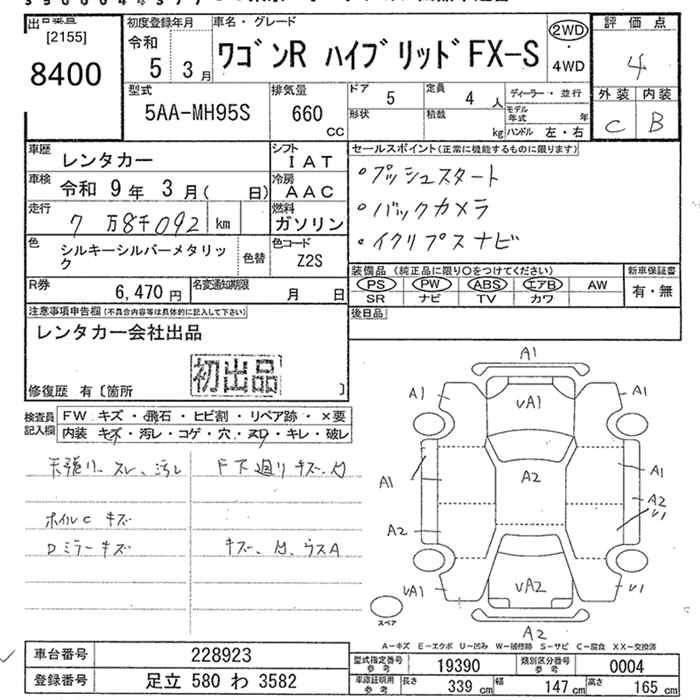 出品番号 初度登録年月 車名・グレード 評価点
[2155]
8400
令和 5年 3月
ワゴンR ハイブリッド FX-S
2WD
・
4WD
4
型式 排気量 ドア 定員 ディーラー・並行 外装 内装
5AA-MH95S 660 CC 5 4 人
形状 積載 kg モデル年式 年
ハンドル 左・右
C B
車歴 レンタカー シフト IAT セールスポイント(正常に機能するものに限ります)
車検 令和 9年 3月( 日) 冷房 AAC ・プッシュスタート
走行 7万8千092 km 燃料 ガソリン ・バックカメラ
色 シルキーシルバーメタリック 色替 色コード Z2S ・イクリプスナビ
装備品(純正品に限り○をつけてください) 新車保証書
PS PW ABS エアB AW 有・無
SR ナビ TV カワ
R券 6,470円 名変通知期限 月 日
後日品
注意事項申告欄(不具合内容等は具体的に記入して下さい)
レンタカー会社出品
初出品
修復歴 有〔箇所 〕
検査員記入欄 FW キズ・飛石・ヒビ割・リペア跡・×要
内装 キズ・汚レ・コゲ・穴・スリ・キレ・破レ
天張リ スレ、汚レ F下廻リ キズ、
ホイルC キズ
Dミラーキズ キズ、 ウスA
A1
A1 UA1 A1
A1 A2 A1
A2
A2 U1
UA1 UA2 U1
スペア
A2
A-キズ E-エクボ U-凹み W-補修跡 S-サビ C-腐食 XX-交換済
車台番号 228923 型式指定番号 参考 19390 類別区分番号 参考 0004
登録番号 足立 580 わ 3582 車庫証明用 参考 長さ 339 cm 幅 147 cm 高さ 165 cm